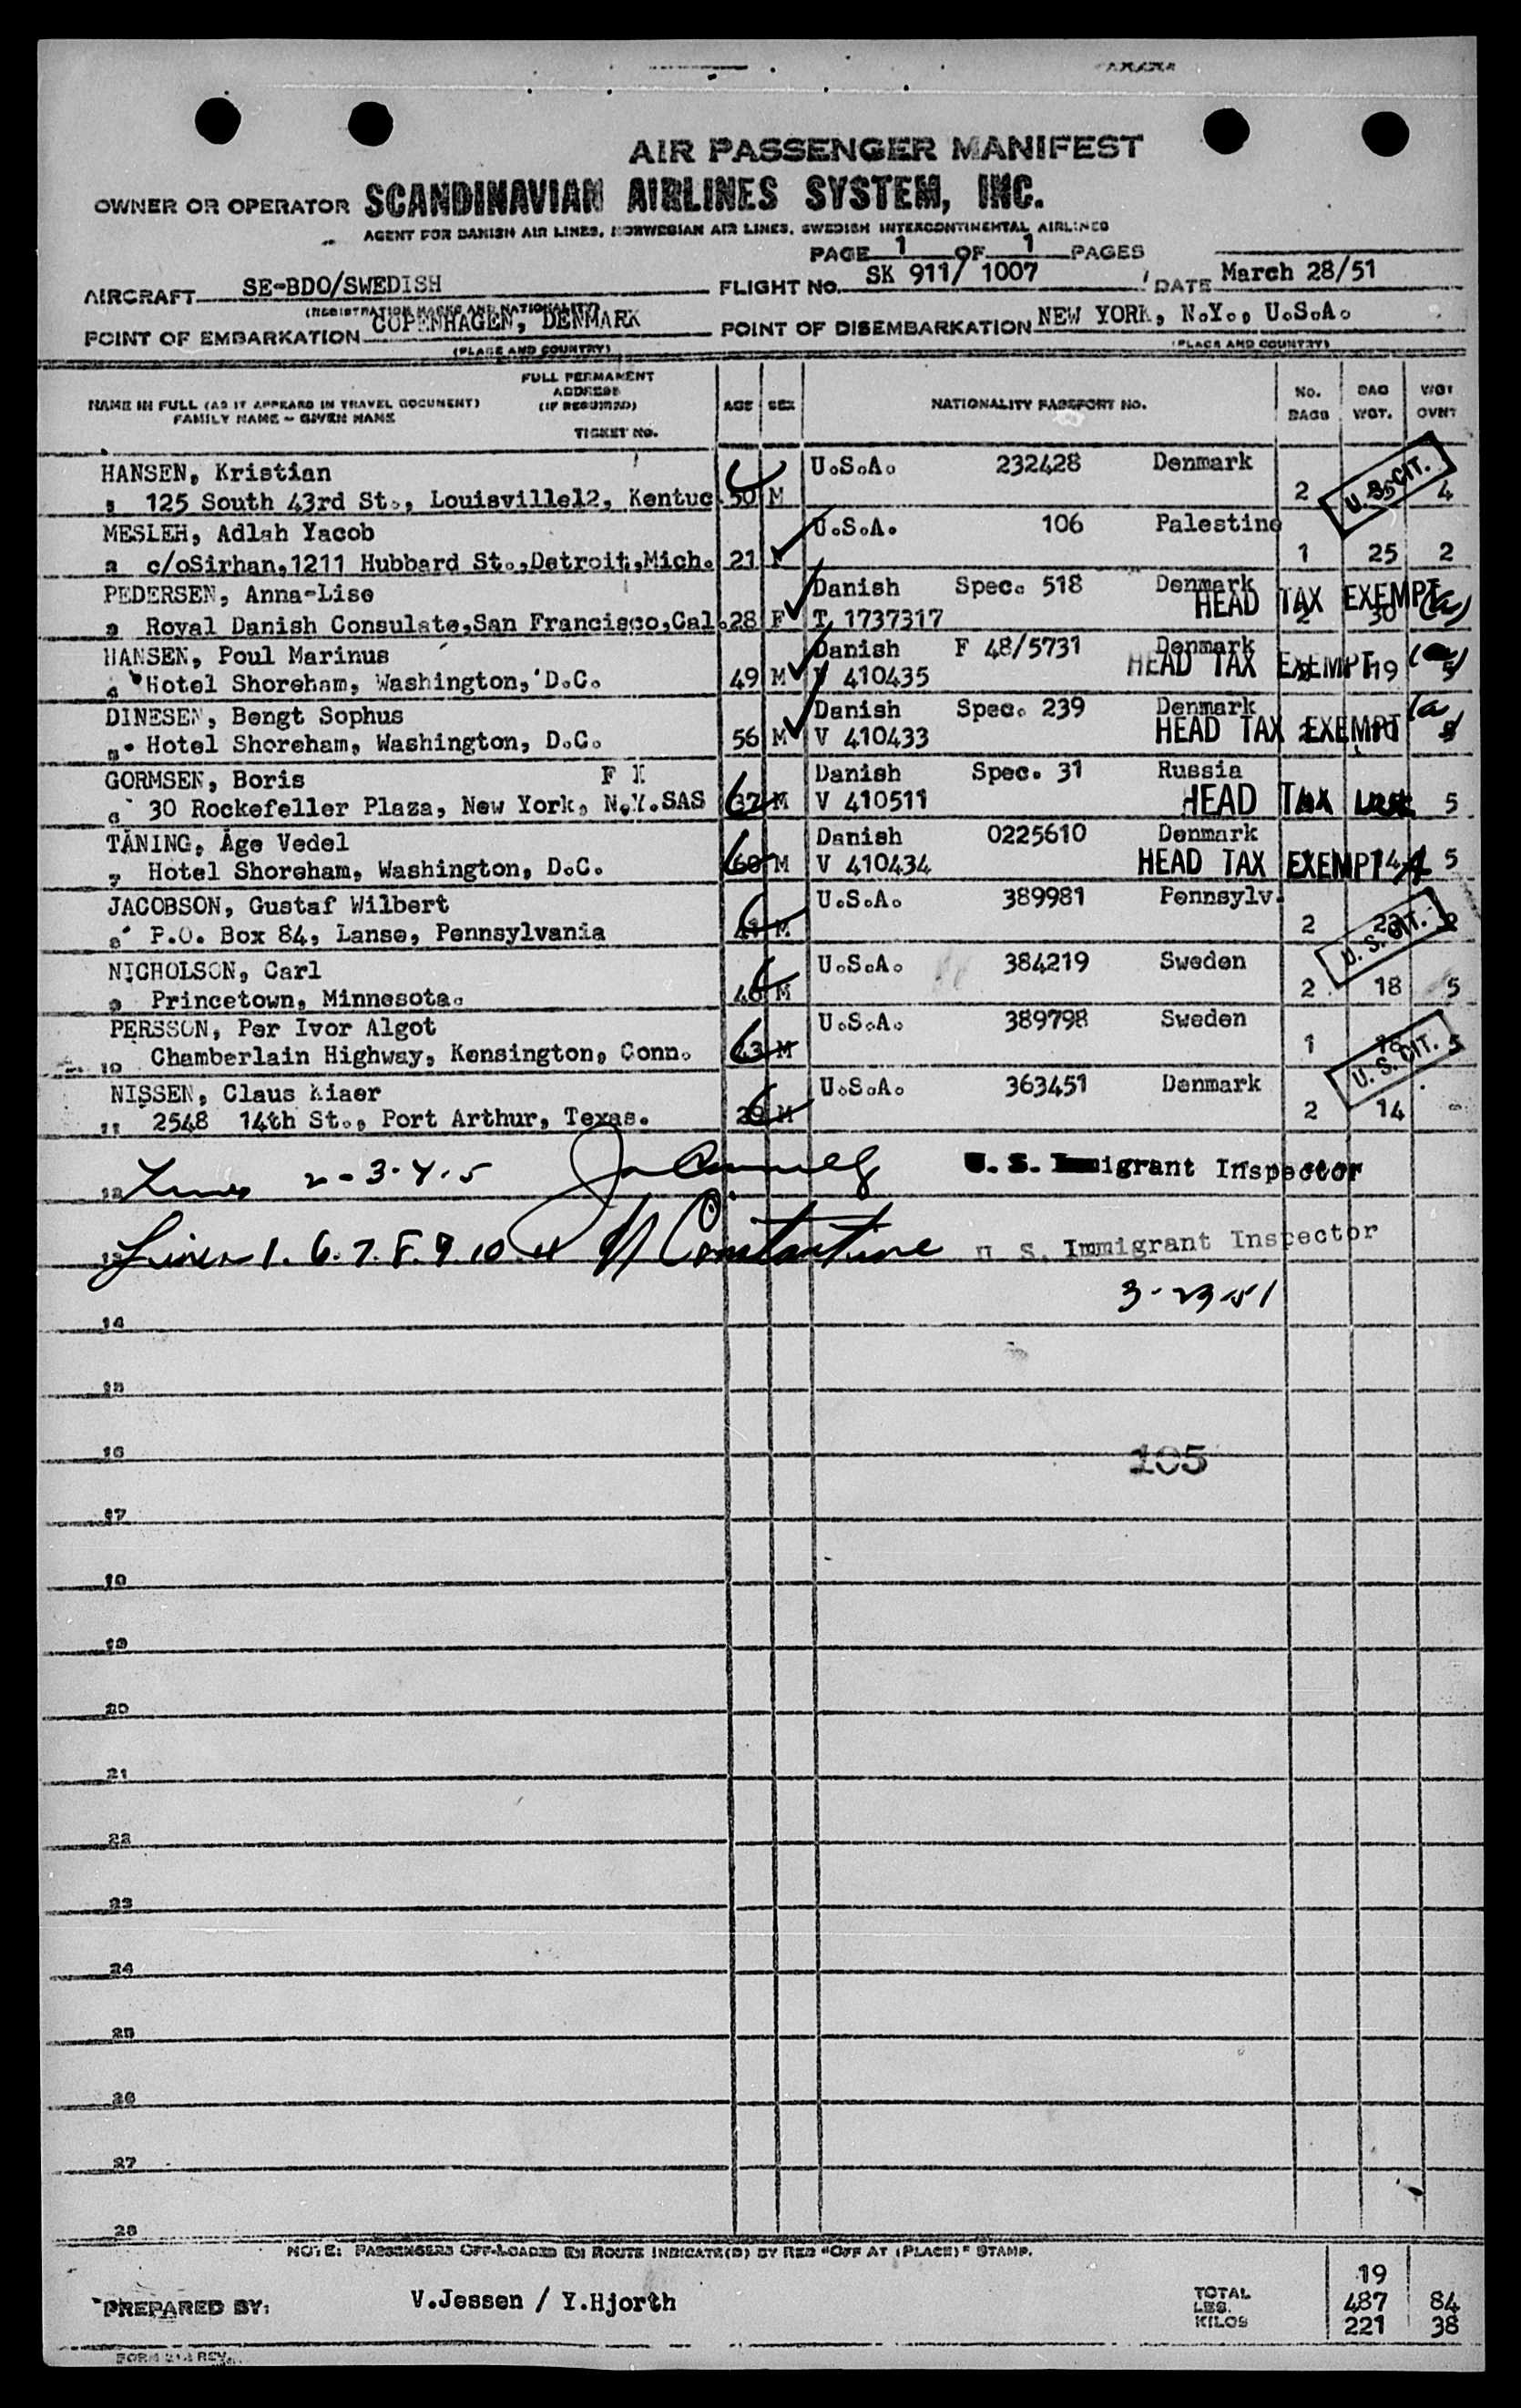 AIR PASSENGER MANIFEST
OWNER OR OPERATOR SCANDINAVIAN AIRLINES SYSTEM, INC.
AGENT FOR DANISH AIR LINES, NORWEGIAN AIR LINES, SWEDISH INTERCONTINENTAL AIRLINES
PAGE 1 OF 1 PAGES
AIRCRAFT SE-BDO/SWEDISH FLIGHT NO. SK 911/ 1007 DATE March 28/51
(REGISTRATION MARKS AND NATIONALITY)
POINT OF EMBARKATION COPENHAGEN, DENMARK POINT OF DISEMBARKATION NEW YORK, N.Y., U.S.A.
(PLACE AND COUNTRY) (PLACE AND COUNTRY)
NAME IN FULL (AS IT APPEARS IN TRAVEL DOCUMENT) FAMILY NAME - GIVEN NAME FULL PERMANENT ADDRESS (IF REQUIRED) TICKET NO. AGE SEX NATIONALITY PASSPORT NO. NO. BAGS BAG WGT. WGT OVNT
HANSEN, Kristian U.S.A. 232428 Denmark
1 125 South 43rd St., Louisville12, Kentuc 50 M 2 U.S. CIT. 4
MESLEH, Adlah Yacob U.S.A. 106 Palestine
2 c/oSirhan,1211 Hubbard St.,Detroit,Mich. 21 1 25 2
PEDERSEN, Anna-Lise Danish Spec. 518 Denmark
3 Royal Danish Consulate,San Francisco,Cal. 28 F T 1737317 HEAD TAX EXEMPT 2 30 (a)
HANSEN, Poul Marinus Danish F 48/5731 Denmark
4 Hotel Shoreham, Washington, D.C. 49 M V 410435 HEAD TAX EXEMPT 19 (a) 5
DINESEN, Bengt Sophus Danish Spec. 239 Denmark
5 Hotel Shoreham, Washington, D.C. 56 M V 410433 HEAD TAX EXEMPT (a 5
GORMSEN, Boris Danish Spec. 31 Russia
6 30 Rockefeller Plaza, New York, N.Y.SAS 37 M V 410511 HEAD TAX 5
TÅNING, Åge Vedel Danish 0225610 Denmark
7 Hotel Shoreham, Washington, D.C. 60 M V 410434 HEAD TAX EXEMPT 14 A 5
JACOBSON, Gustaf Wilbert U.S.A. 389981 Pennsylv.
8 P.O. Box 84, Lanse, Pennsylvania 41 M 2 U.S. CIT. 2
NICHOLSON, Carl U.S.A. 384219 Sweden
9 Princetown, Minnesota. 46 M 2 18 5
PERSSON, Per Ivor Algot U.S.A. 389798 Sweden
10 Chamberlain Highway, Kensington, Conn. 43 M 1 18 5 U.S. CIT.
NISSEN, Claus Kiaer U.S.A. 363451 Denmark
11 2548 14th St., Port Arthur, Texas. 29 M 2 14 -
12 Lines 2-3-4-5 U. S. Immigrant Inspector
13 Lines 1. 6. 7. 8. 9. 10. 11 Constantine U. S. Immigrant Inspector
3-23-51
14
15
16 105
17
18
19
20
21
22
23
24
25
26
27
28
NOTE: PASSENGERS OFF-LOADED EN ROUTE INDICATE(D) BY RED "OFF AT (PLACE)" STAMP.
19
PREPARED BY: V.Jessen / Y.Hjorth TOTAL LBS. 487 84
KILOS 221 38